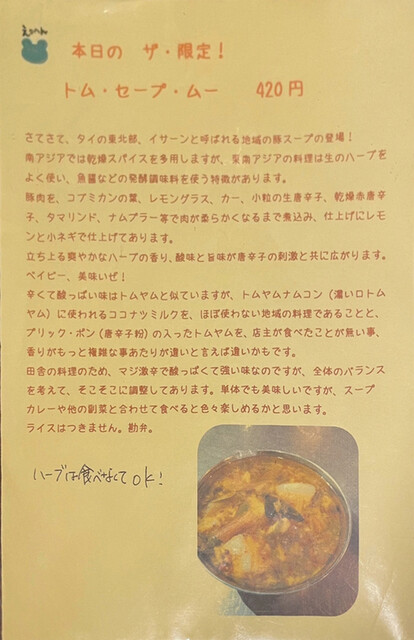 えっへん
本日の ザ・限定！
トム・セープ・ムー 420円
さてさて、タイの東北部、イサーンと呼ばれる地域の豚スープの登場！
南アジアでは乾燥スパイスを多用しますが、東南アジアの料理は生のハーブを
よく使い、魚醤などの発酵調味料を使う特徴があります。
豚肉を、コブミカンの葉、レモングラス、カー、小粒の生唐辛子、乾燥赤唐辛
子、タマリンド、ナムプラー等で肉が柔らかくなるまで煮込み、仕上げにレモ
ンと小ネギで仕上げてあります。
立ち上る爽やかなハーブの香り、酸味と旨味が唐辛子の刺激と共に広がります。
ベイビー、美味いぜ！
辛くて酸っぱい味はトムヤムと似ていますが、トムヤムナムコン（濃い口トム
ヤム）に使われるココナツミルクを、ほぼ使わない地域の料理であることと、
プリック・ポン（唐辛子粉）の入ったトムヤムを、店主が食べたことが無い事、
香りがもっと複雑な事あたりが違いと言えば違いかもです。
田舎の料理のため、マジ激辛で酸っぱくて強い味なのですが、全体のバランス
を考えて、そこそこに調整してあります。単体でも美味しいですが、スープ
カレーや他の副菜と合わせて食べると色々楽しめるかと思います。
ライスはつきません。勘弁。
ハーブは食べなくてOK！